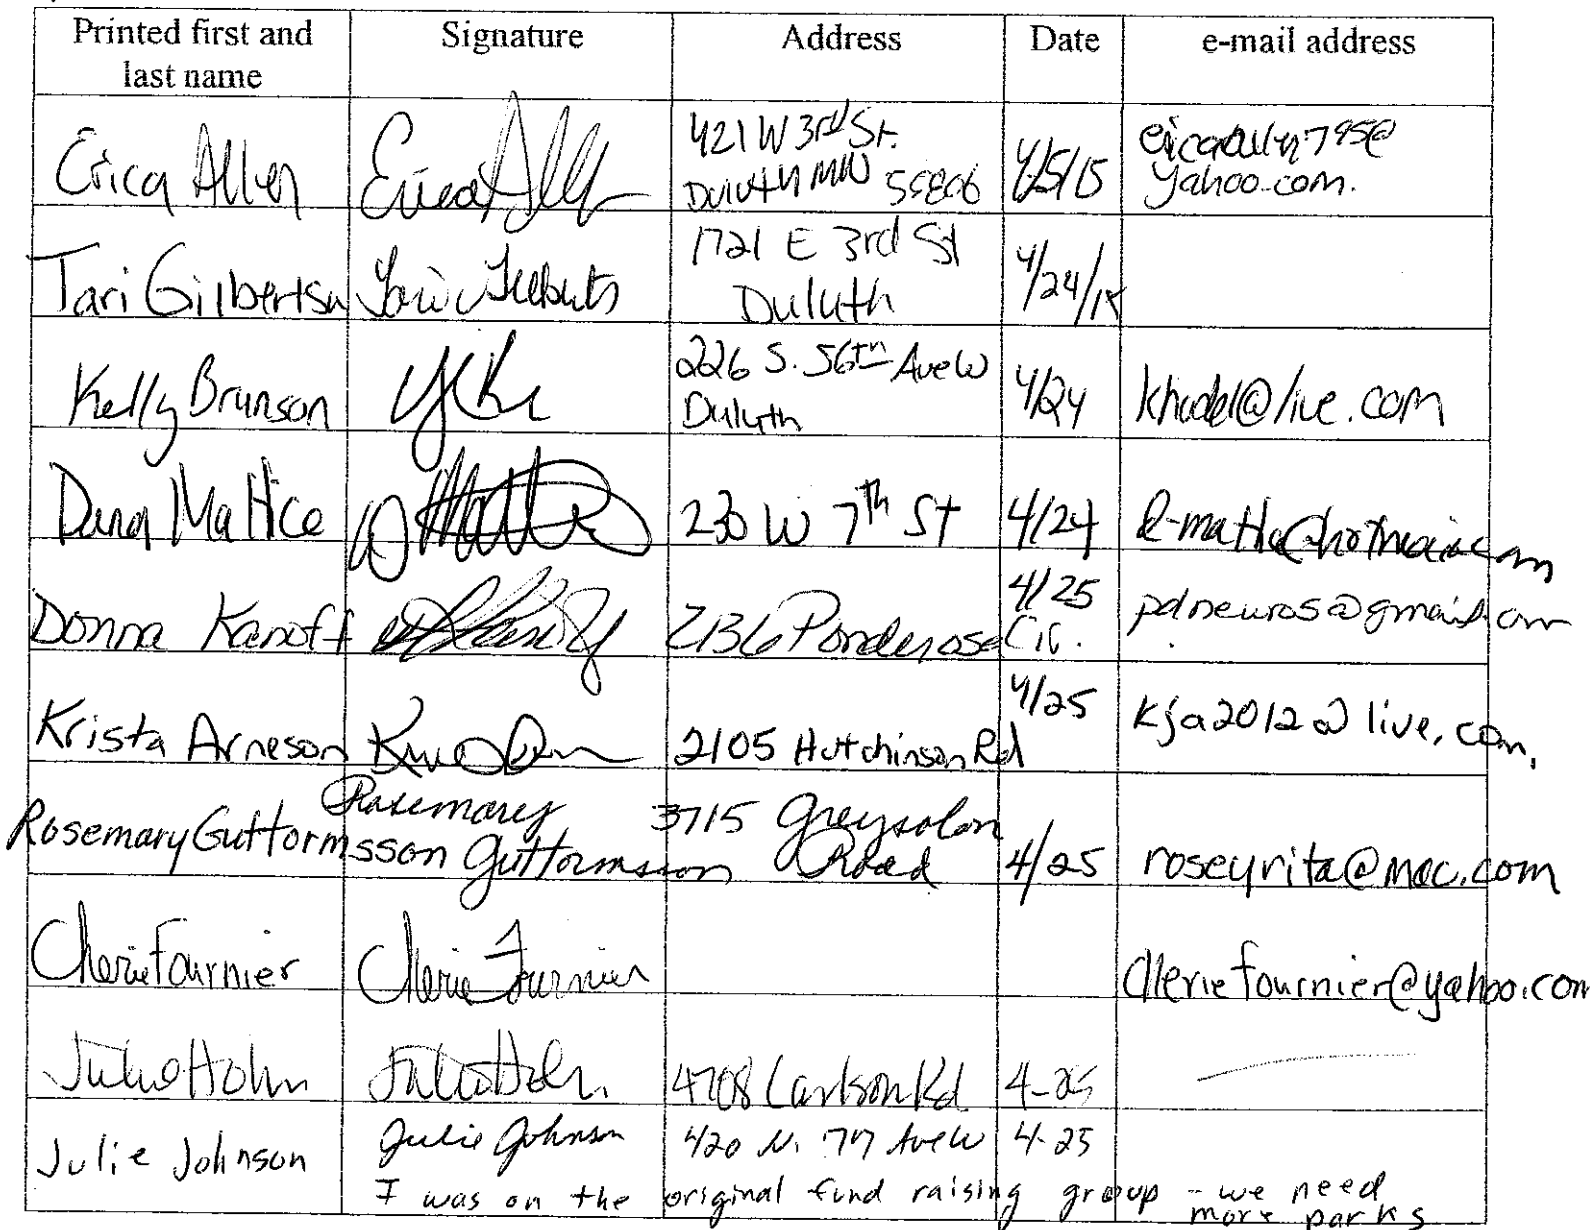 Printed first and last name | Signature | Address | Date | e-mail address
Erica Allen | Erica Allen | 421 W 3rd St. Duluth MN 55806 | 4/25/15 | yahoo.com.
Tari Gilbertson | 1721 E 3rd St Duluth | 4/24/15
Kelly Brunson | 226 S. 56th Ave W Duluth | 4/24 | @live.com
Dana Mattice | 230 W 7th St | 4/24
Donna Kanoff | 2136 Ponderosa Cir. | 4/25 | @gmail.com
Krista Arneson | 2105 Hutchinson Rd | 4/25 | kja2012@live.com.
Rosemary Guttormsson | Rosemary Guttormsson | 3715 Greysolon Road | 4/25 | roseyrita@mac.com
Cherie Fournier | Cherie Fournier | cheriefournier@yahoo.com
Julie Holm | Julie Holm | 4708 Carlson Rd | 4-25
Julie Johnson | Julie Johnson | 420 N. 77 Ave W | 4-25
I was on the original fund raising group - we need
more parks